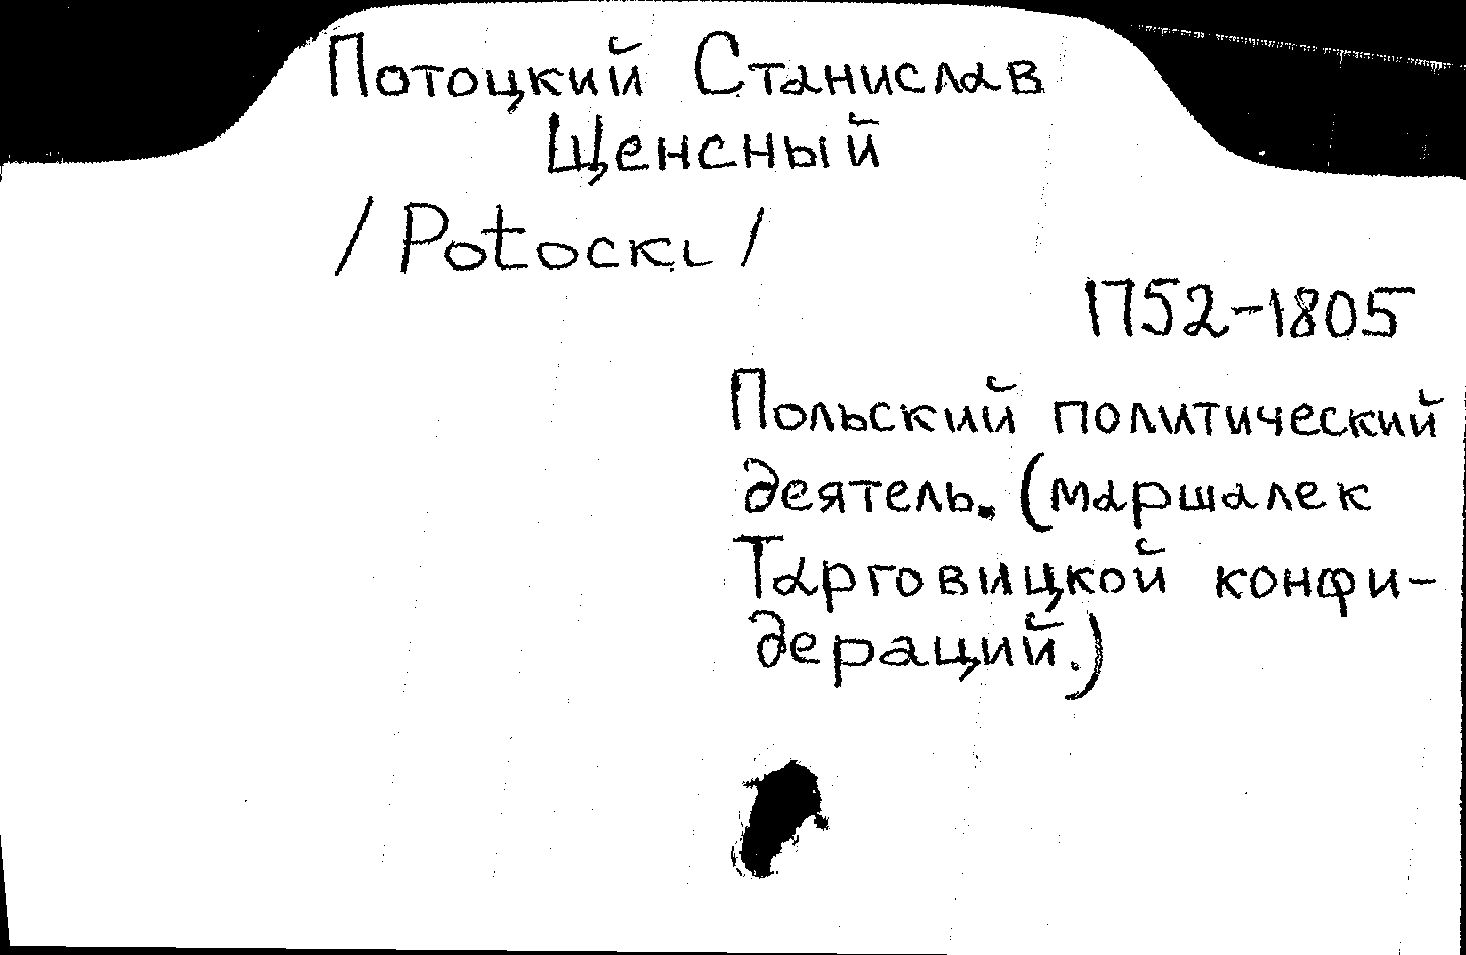 Потоцкий Станислав
Щенсный
/Potocki/
1752-1805
Польский политический
деятель. (маршалек
Тарговицкой конфи-
дераций.)